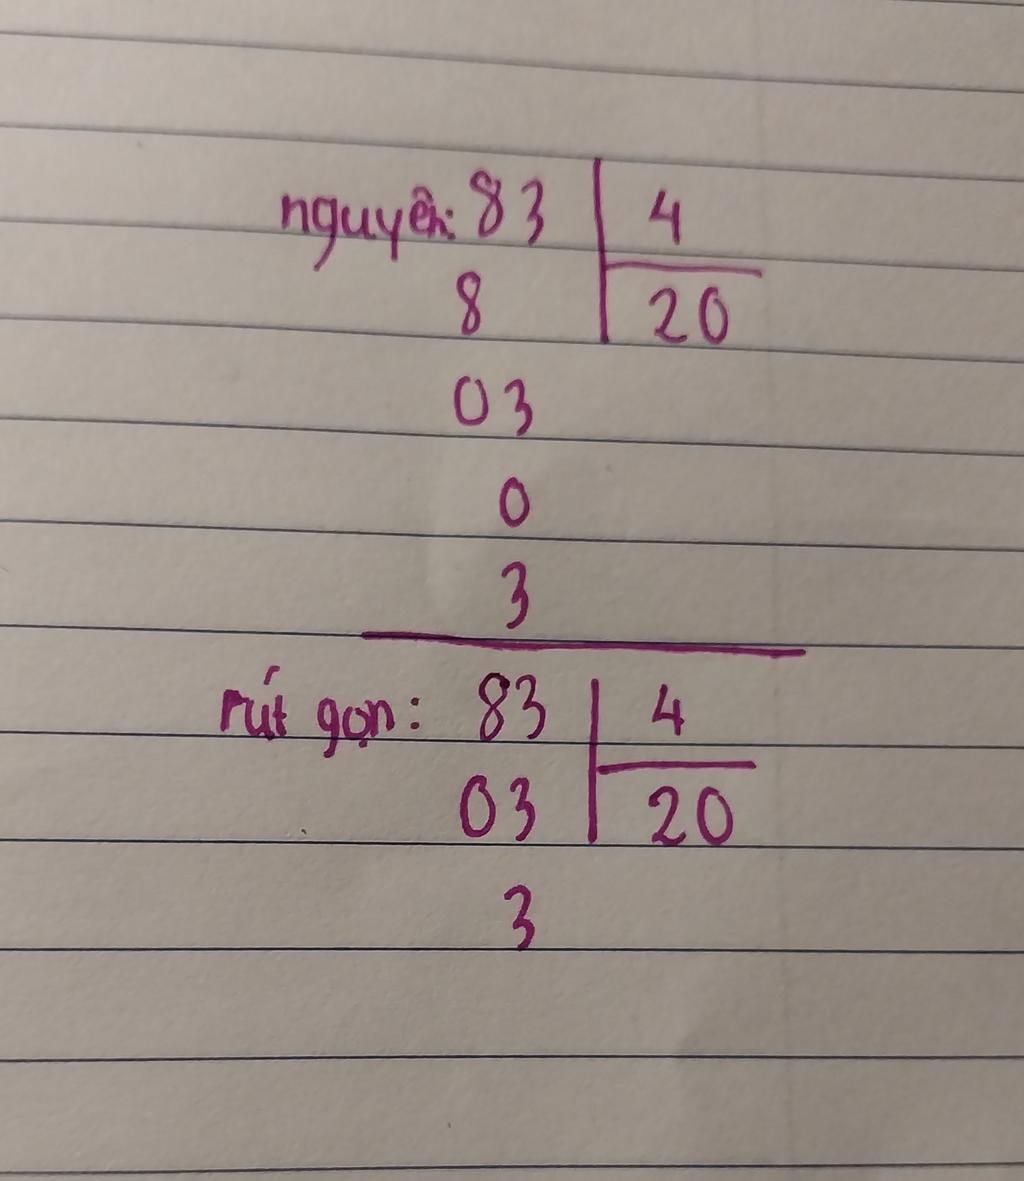 nguyên: 83 4
8 20
03
0
3
rút gọn: 83 4
03 20
3